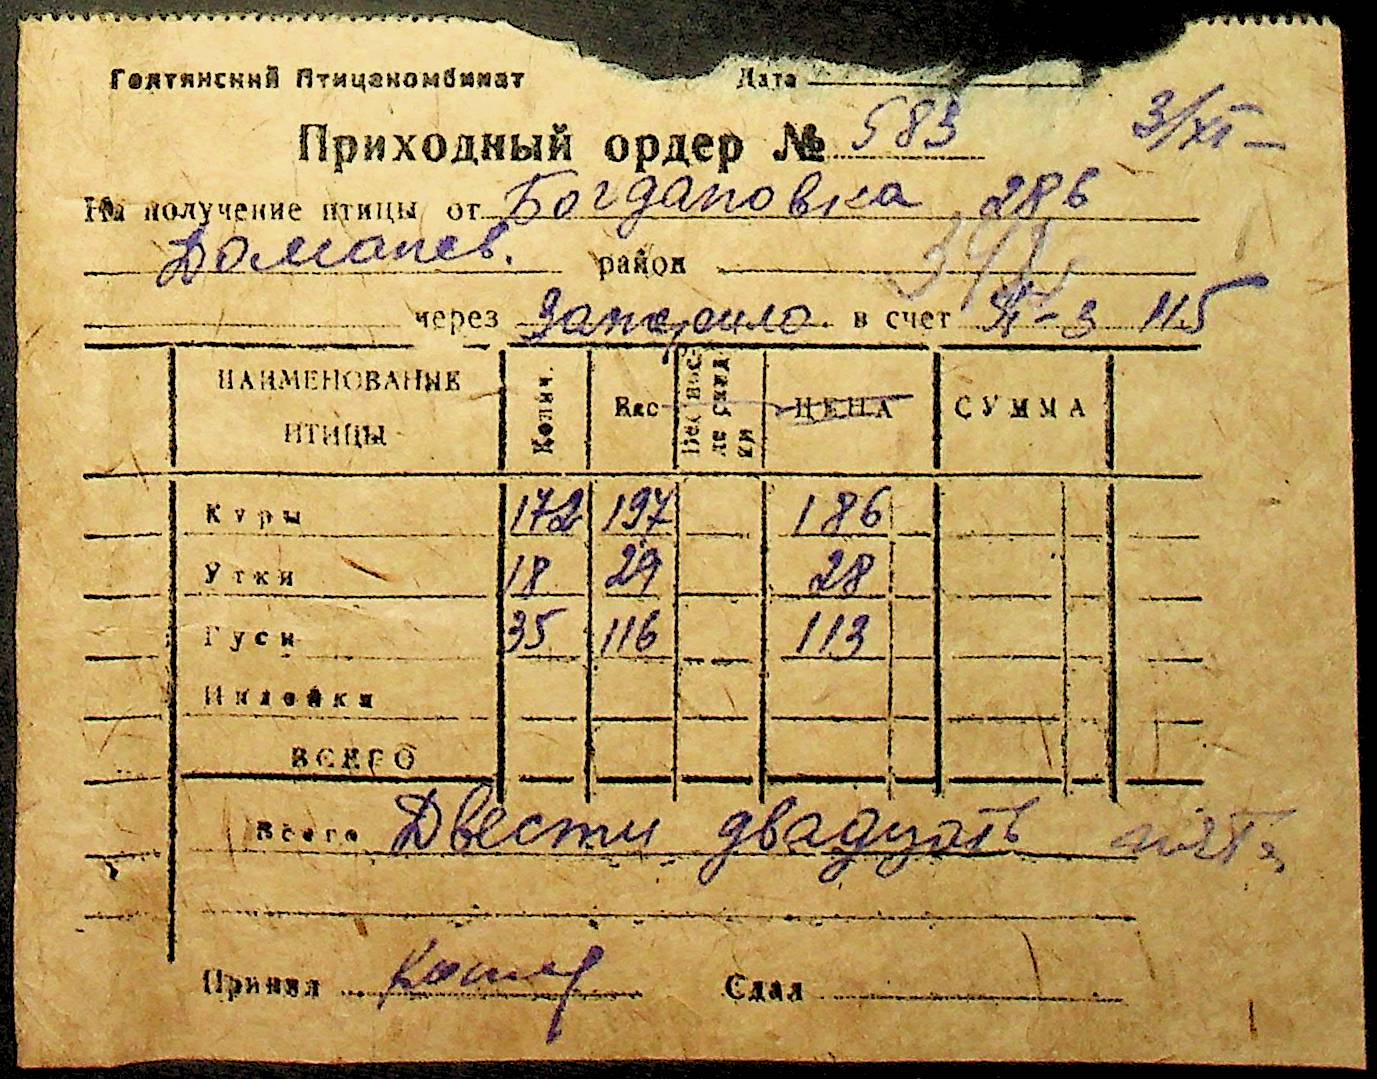 Голтянский Птицекомбинат Дата
Приходный ордер № 583 3/XI
На получение птицы от Богдановка 286
Доманев. район
через в счет XI-3 115
НАИМЕНОВАНИЕ ПТИЦЫ Колич. Вес Вес после скидки ЦЕНА СУММА
Куры 172 197 186
Утки 18 29 28
Гуси 35 116 113
Индейки
ВСЕГО
Всего Двести двадцать пять
Принял Сдал